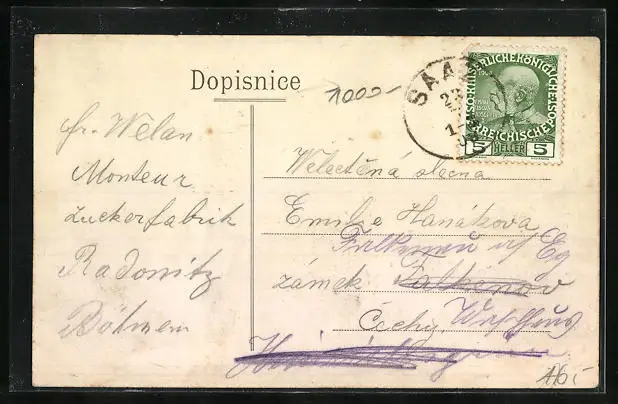 Dopisnice
1000-
SAAZ
KAISERLICHE KÖNIGLICHE
ÖSTERREICHISCHE POST
1908
5 HELLER 5
fr. Welan
Monteur
Zuckerfabrik
Radonitz
Böhmen
Velectěná slečna
Emilie Hanákova
Falkenau a/ Eg
zámek Falkenov
Čechy
16.-